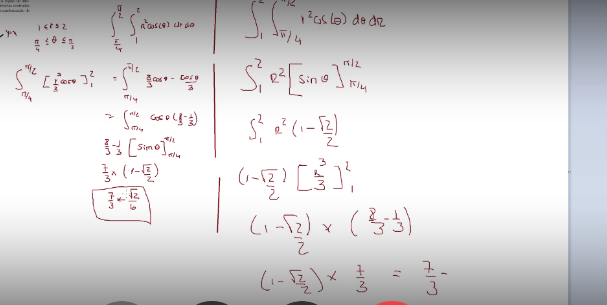 1 ≤ r ≤ 2
π/4 ≤ θ ≤ π/2
∫_{π/4}^{π/2} ∫_1^2 r² cos(θ) dr dθ
∫_{π/4}^{π/2} [r³/3 cosθ]_1^2 = ∫_{π/4}^{π/2} 8/3 cosθ - cosθ/3
= ∫_{π/4}^{π/2} cosθ (8/3 - 1/3)
8/3 - 1/3 [sinθ]_{π/4}^{π/2}
7/3 × (1 - √2/2)
∫_1^2 ∫_{π/4}^{π/2} r² cos(θ) dθ dr
∫_1^2 r² [sin θ]_{π/4}^{π/2}
∫_1^2 r² (1 - √2/2)
(1 - √2/2) [r³/3]_1^2
(1 - √2/2) × (8/3 - 1/3)
(1 - √2/2) × 7/3 = 7/3 -